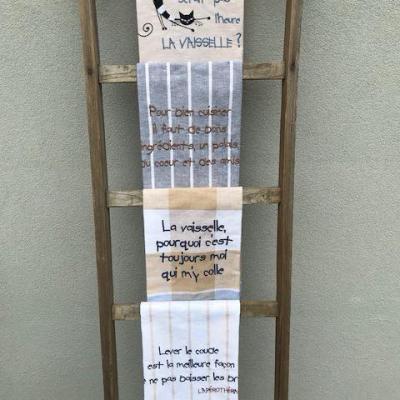 pas
l'heure
LA VAISSELLE ?
Pour bien cuisiner
il faut de bons
ingrédients, un palais,
du coeur et des amis
La vaisselle,
pourquoi c'est
toujours moi
qui m'y colle
Lever le coude
est la meilleure façon
e ne pas baisser les br